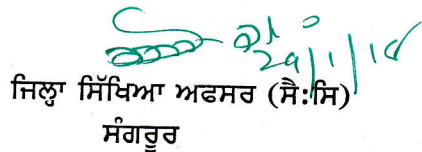 29/1/18
ਜਿਲ੍ਹਾ ਸਿੱਖਿਆ ਅਫਸਰ (ਸੈ:ਸਿ)
ਸੰਗਰੂਰ